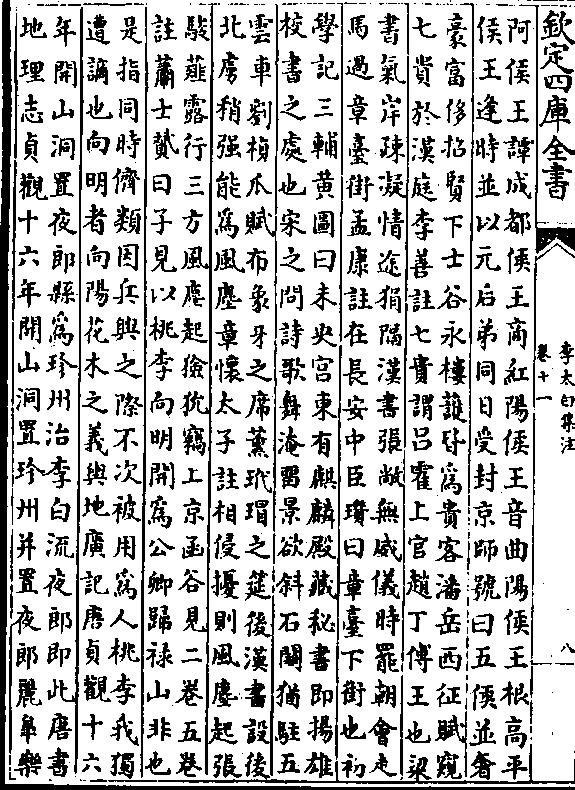 欽定四庫全書
李太白集注
卷十一
八
阿侯王譚成都侯王商紅陽侯王音曲陽侯王根高平
侯王逢時並以元后弟同日受封京師號曰五侯並奢
豪富侈招賢下士谷永樓護皆為貴客潘岳西征賦窺
七貴於漢庭李善註七貴謂呂霍上官趙丁傅王也梁
書氣岸疎凝情途狷隔漢書張敞無威儀時罷朝會走
馬過章臺街孟康註在長安中臣瓚曰章臺下街也初
學記三輔黄圖曰未央宫東有麒麟殿藏秘書即揚雄
校書之處也宋之問詩歌舞淹留景欲斜石關猶駐五
雲車劉楨瓜賦布象牙之席薰玳瑁之筵後漢書設後
北虜稍强能為風塵章懷太子註相侵擾則風塵起張
駿薤露行三方風塵起獫狁竊上京函谷見二卷五卷
註蕭士贇曰子見以桃李向明開為公卿歸禄山非也
是指同時儕類因兵興之際不次被用為人桃李我獨
遭謫也向明者向陽花木之義輿地廣記唐貞觀十六
年開山洞置夜郎縣為珍州治李白流夜郎即此唐書
地理志貞觀十六年開山洞置珍州并置夜郎麗臯樂